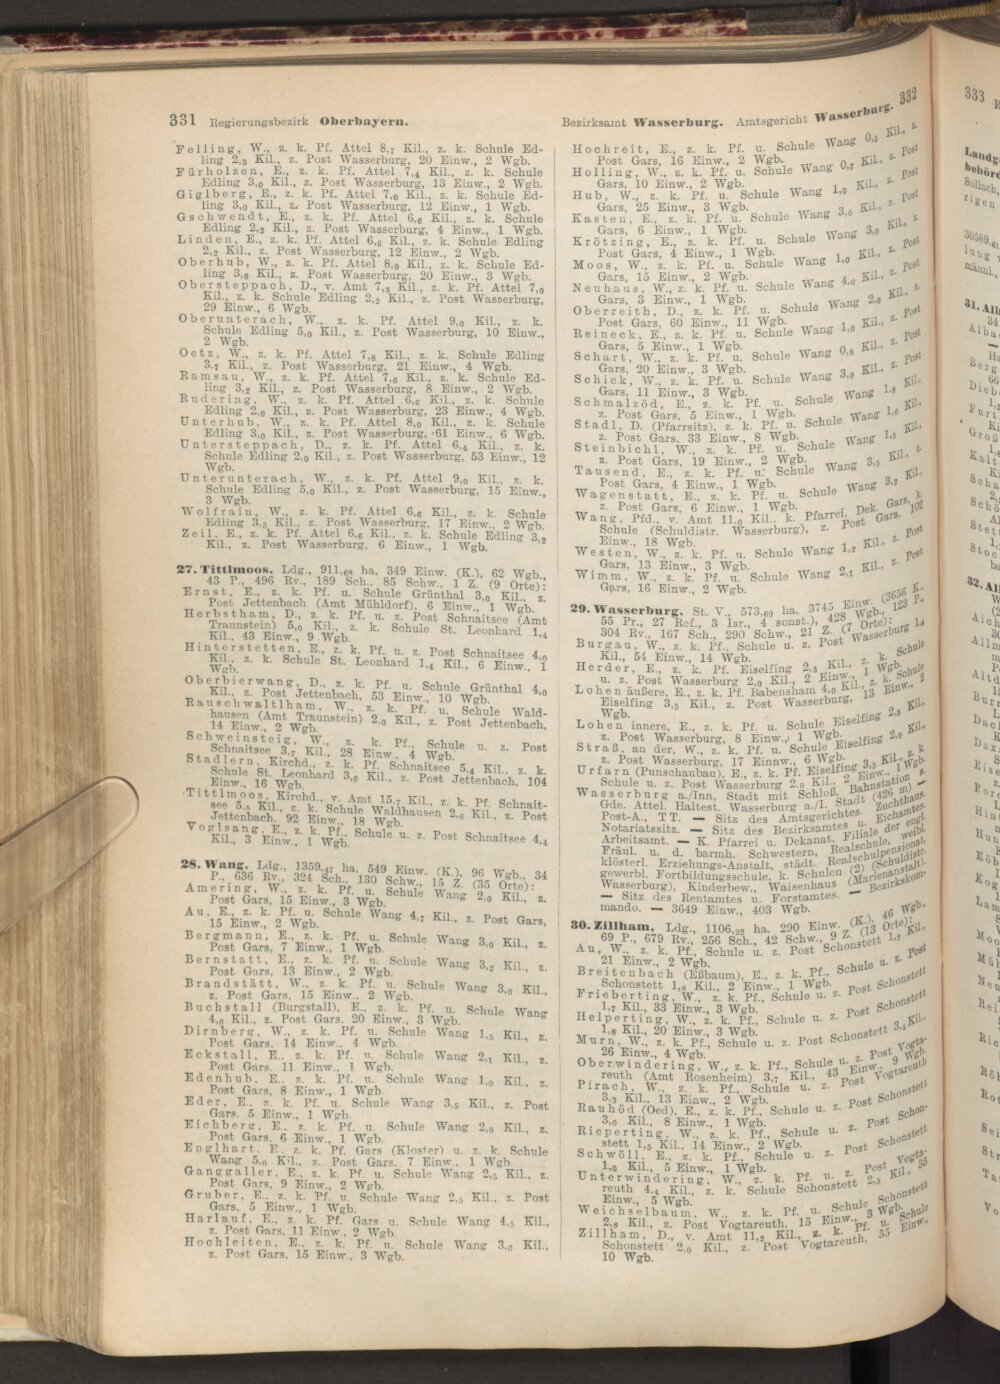 331 Regierungsbezirk Oberbayern.
Felling, W., z. k. Pf. Attel 8,7 Kil., z. k. Schule Ed-
ling 2,3 Kil., z. Post Wasserburg, 20 Einw., 2 Wgb.
Fürholzen, E., z. k. Pf. Attel 7,4 Kil., z. k. Schule
Edling 3,0 Kil., z. Post Wasserburg, 13 Einw., 2 Wgb.
Giglberg, E., z. k. Pf. Attel 7,0 Kil., z. k. Schule Ed-
ling 3,0 Kil., z. Post Wasserburg, 12 Einw., 1 Wgb.
Gschwendt, E., z. k. Pf. Attel 6,6 Kil., z. k. Schule
Edling 2,2 Kil., z. Post Wasserburg, 4 Einw., 1 Wgb.
Linden, E., z. k. Pf. Attel 6,6 Kil., z. k. Schule Edling
2,2 Kil., z. Post Wasserburg, 12 Einw., 2 Wgb.
Oberhub, W., z. k. Pf. Attel 8,0 Kil., z. k. Schule Ed-
ling 3,8 Kil., z. Post Wasserburg, 20 Einw., 3 Wgb.
Obersteppach, D., v. Amt 7,3 Kil., z. k. Pf. Attel 7,0
Kil., z. k. Schule Edling 2,2 Kil., z. Post Wasserburg,
29 Einw., 6 Wgb.
Oberunterach, W., z. k. Pf. Attel 9,0 Kil., z. k.
Schule Edling 5,0 Kil., z. Post Wasserburg, 10 Einw.,
2 Wgb.
Oetz, W., z. k. Pf. Attel 7,8 Kil., z. k. Schule Edling
3,7 Kil., z. Post Wasserburg, 21 Einw., 4 Wgb.
Ramsau, W., z. k. Pf. Attel 7,6 Kil., z. k. Schule Ed-
ling 3,2 Kil., z. Post Wasserburg, 8 Einw., 2 Wgb.
Rudering, W., z. k. Pf. Attel 6,6 Kil., z. k. Schule
Edling 2,0 Kil., z. Post Wasserburg, 23 Einw., 4 Wgb.
Unterhub, W., z. k. Pf. Attel 8,0 Kil., z. k. Schule
Edling 3,0 Kil., z. Post Wasserburg, 61 Einw., 6 Wgb.
Untersteppach, D., z. k. Pf. Attel 6,4 Kil., z. k.
Schule Edling 2,0 Kil., z. Post Wasserburg, 53 Einw., 12
Wgb.
Unterunterach, W., z. k. Pf. Attel 9,0 Kil., z. k.
Schule Edling 5,0 Kil., z. Post Wasserburg, 15 Einw.,
3 Wgb.
Wolfrain, W., z. k. Pf. Attel 6,6 Kil., z. k. Schule
Edling 3,3 Kil., z. Post Wasserburg, 17 Einw., 2 Wgb.
Zeil, E., z. k. Pf. Attel 6,6 Kil., z. k. Schule Edling 3,2
Kil., z. Post Wasserburg, 6 Einw., 1 Wgb.
27. Tittlmoos, Ldg., 911,68 ha, 349 Einw. (K.), 62 Wgb.,
43 P., 496 Rv., 189 Sch., 85 Schw., 1 Z. (9 Orte):
Ernst, E., z. k. Pf. u. Schule Grünthal 3,0 Kil., z.
Post Jettenbach (Amt Mühldorf), 6 Einw., 1 Wgb.
Herbstham, D., z. k. Pf. u. z. Post Schnaitsee (Amt
Traunstein) 5,0 Kil., z. k. Schule St. Leonhard 1,4
Kil., 43 Einw., 9 Wgb.
Hinterstetten, E., z. k. Pf. u. z. Post Schnaitsee 4,0
Kil., z. k. Schule St. Leonhard 1,4 Kil., 6 Einw., 1
Wgb.
Oberbierwang, D., z. k. Pf. u. Schule Grünthal 4,0
Kil., z. Post Jettenbach, 53 Einw., 10 Wgb.
Rauschwaltlham, W., z. k. Pf. u. Schule Wald-
hausen (Amt Traunstein) 2,0 Kil., z. Post Jettenbach,
14 Einw., 2 Wgb.
Schweinsteig, W., z. k. Pf., Schule u. z. Post
Schnaitsee 3,7 Kil., 28 Einw., 4 Wgb.
Stadlern, Kirchd., z. k. Pf. Schnaitsee 5,4 Kil., z. k.
Schule St. Leonhard 3,0 Kil., z. Post Jettenbach, 104
Einw., 16 Wgb.
Tittlmoos, Kirchd., v. Amt 15,7 Kil., z. k. Pf. Schnait-
see 5,5 Kil., z. k. Schule Waldhausen 2,8 Kil., z. Post
Jettenbach, 92 Einw., 18 Wgb.
Voglsang, E., z. k. Pf., Schule u. z. Post Schnaitsee 4,4
Kil., 3 Einw., 1 Wgb.
28. Wang, Ldg., 1359,47 ha, 549 Einw. (K.), 96 Wgb., 34
P., 636 Rv., 324 Sch., 130 Schw., 15 Z. (35 Orte):
Amering, W., z. k. Pf. u. Schule Wang 2,0 Kil., z.
Post Gars, 15 Einw., 3 Wgb.
Au, E., z. k. Pf. u. Schule Wang 4,7 Kil., z. Post Gars,
15 Einw., 2 Wgb.
Bergmann, E., z. k. Pf. u. Schule Wang 3,0 Kil., z.
Post Gars, 7 Einw., 1 Wgb.
Bernstatt, E., z. k. Pf. u. Schule Wang 3,2 Kil., z.
Post Gars, 13 Einw., 2 Wgb.
Brandstätt, W., z. k. Pf. u. Schule Wang 3,0 Kil.,
z. Post Gars, 15 Einw., 2 Wgb.
Buchstall (Burgstall), E., z. k. Pf. u. Schule Wang
4,0 Kil., z. Post Gars, 20 Einw., 3 Wgb.
Dirnberg, W., z. k. Pf. u. Schule Wang 1,5 Kil., z.
Post Gars, 14 Einw., 4 Wgb.
Eckstall, E., z. k. Pf. u. Schule Wang 2,1 Kil., z.
Post Gars, 11 Einw., 1 Wgb.
Edenhub, E., z. k. Pf. u. Schule Wang 1,0 Kil., z.
Post Gars, 8 Einw., 1 Wgb.
Eder, E., z. k. Pf. u. Schule Wang 3,5 Kil., z. Post
Gars, 5 Einw., 1 Wgb.
Eichberg, E., z. k. Pf. u. Schule Wang 2,0 Kil., z.
Post Gars, 6 Einw., 1 Wgb.
Englhart, E., z. k. Pf. Gars (Kloster) u. z. k. Schule
Wang 5,0 Kil., z. Post Gars, 7 Einw., 1 Wgb.
Ganggaller, E., z. k. Pf. u. Schule Wang 2,5 Kil., z.
Post Gars, 9 Einw., 2 Wgb.
Gruber, E., z. k. Pf. u. Schule Wang 2,5 Kil., z. Post
Gars, 5 Einw., 1 Wgb.
Harlauf, E., z. k. Pf. Gars u. Schule Wang 4,5 Kil.,
z. Post Gars, 11 Einw., 2 Wgb.
Hochleiten, E., z. k. Pf. u. Schule Wang 3,0 Kil.,
z. Post Gars, 15 Einw., 3 Wgb.
Bezirksamt Wasserburg. Amtsgericht Wasserburg. 332
Hochreit, E., z. k. Pf. u. Schule Wang 0,5 Kil., z.
Post Gars, 16 Einw., 2 Wgb.
Holling, W., z. k. Pf. u. Schule Wang 0,7 Kil., z. Post
Gars, 10 Einw., 2 Wgb.
Hub, W., z. k. Pf. u. Schule Wang 1,0 Kil., z. Post
Gars, 25 Einw., 3 Wgb.
Kasten, E., z. k. Pf. u. Schule Wang 3,0 Kil., z. Post
Gars, 6 Einw., 1 Wgb.
Krötzing, E., z. k. Pf. u. Schule Wang 3,0 Kil., z.
Post Gars, 4 Einw., 1 Wgb.
Moos, W., z. k. Pf. u. Schule Wang 1,0 Kil., z. Post
Gars, 15 Einw., 2 Wgb.
Neuhaus, W., z. k. Pf. u. Schule Wang 4,0 Kil., z. Post
Gars, 3 Einw., 1 Wgb.
Oberreith, D., z. k. Pf. u. Schule Wang 2,0 Kil., z.
Post Gars, 60 Einw., 11 Wgb.
Reineck, E., z. k. Pf. u. Schule Wang 1,0 Kil., z. Post
Gars, 5 Einw., 1 Wgb.
Schart, W., z. k. Pf. u. Schule Wang 0,8 Kil., z. Post
Gars, 20 Einw., 3 Wgb.
Schick, W., z. k. Pf. u. Schule Wang 3,0 Kil., z. Post
Gars, 11 Einw., 3 Wgb.
Schmalzöd, E., z. k. Pf. u. Schule Wang 1,8 Kil.,
z. Post Gars, 5 Einw., 1 Wgb.
Stadl, D. (Pfarrsitz), z. k. Pf. u. Schule Wang 1,6 Kil.,
z. Post Gars, 33 Einw., 8 Wgb.
Steinbichl, W., z. k. Pf. u. Schule Wang 1,5 Kil.,
z. Post Gars, 19 Einw., 2 Wgb.
Tausend, E., z. k. Pf. u. Schule Wang 3,5 Kil., z.
Post Gars, 4 Einw., 1 Wgb.
Wagenstatt, E., z. k. Pf. u. Schule Wang 3,2 Kil.,
z. Post Gars, 6 Einw., 1 Wgb.
Wang, Pfd., v. Amt 11,0 Kil., k. Pfarrei, Dek. Gars, k.
Schule (Schuldistr. Wasserburg), z. Post Gars, 102
Einw., 18 Wgb.
Westen, W., z. k. Pf. u. Schule Wang 1,2 Kil., z. Post
Gars, 13 Einw., 3 Wgb.
Wimm, W., z. k. Pf. u. Schule Wang 2,1 Kil., z. Post
Gars, 16 Einw., 2 Wgb.
29. Wasserburg, St. V., 573,60 ha, 3745 Einw. (3656 K.,
55 Pr., 27 Ref., 3 Isr., 4 sonst.), 428 Wgb., 123 P.,
304 Rv., 167 Sch., 290 Schw., 21 Z. (7 Orte):
Burgau, W., z. k. Pf., Schule u. z. Post Wasserburg 1,4
Kil., 54 Einw., 14 Wgb.
Herder, E., z. k. Pf. Eiselfing 2,5 Kil., z. k. Schule
u. z. Post Wasserburg 2,0 Kil., 2 Einw., 1 Wgb.
Lohen äußere, E., z. k. Pf. Babensham 4,0 Kil., z. k. Schule
Eiselfing 3,5 Kil., z. Post Wasserburg, 13 Einw., 2
Wgb.
Lohen innere, E., z. k. Pf. u. Schule Eiselfing 2,8 Kil.,
z. Post Wasserburg, 8 Einw., 1 Wgb.
Straß, an der, W., z. k. Pf. u. Schule Eiselfing 2,0 Kil.,
z. Post Wasserburg, 17 Einnw., 6 Wgb.
Urfarn (Punschaubau), E., z. k. Pf. Eiselfing 3,5 Kil., z. k.
Schule u. z. Post Wasserburg 2,0 Kil., 2 Einw., 1 Wgb.
Wasserburg a./Inn, Stadt mit Schloß, Bahnstation s.
Gde. Attel. Haltest. Wasserburg a./I. Stadt (426 m) —
Post-A., TT. — Sitz des Amtsgerichtes. Zuchthaus.
Notariatssitz. — Sitz des Bezirksamtes u. Eichamtes.
Arbeitsamt. — K. Pfarrei u. Dekanat, Filiale der engl.
Fräul. u. d. barmh. Schwestern, Realschule, weibl.
klösterl. Erziehungs-Anstalt, städt. Realschulpensionat,
gewerbl. Fortbildungsschule, k. Schulen (2) (Schuldistr.
Wasserburg), Kinderbew., Waisenhaus (Marienanstalt).
— Sitz des Rentamtes u. Forstamtes. — Bezirkskom-
mando. — 3649 Einw., 403 Wgb.
30. Zillham, Ldg., 1106,92 ha, 290 Einw. (K.), 46 Wgb.,
69 P., 679 Rv., 256 Sch., 42 Schw., 9 Z. (13 Orte):
Au, W., z. k. Pf., Schule u. z. Post Schonstett 1,2 Kil.,
21 Einw., 2 Wgb.
Breitenbach (Eßbaum), E., z. k. Pf., Schule u. z. Post
Schonstett 1,8 Kil., 2 Einw., 1 Wgb.
Frieberting, W., z. k. Pf., Schule u. z. Post Schonstett
1,7 Kil., 33 Einw., 3 Wgb.
Helperting, W., z. k. Pf., Schule u. z. Post Schonstett
1,8 Kil., 20 Einw., 3 Wgb.
Murn, W., z. k. Pf., Schule u. z. Post Schonstett 3,4 Kil.,
26 Einw., 4 Wgb.
Oberwindering, W., z. k. Pf., Schule u. z. Post Vogta-
reuth (Amt Rosenheim) 3,7 Kil., 43 Einw., 9 Wgb.
Pirach, W., z. k. Pf., Schule u. z. Post Vogtareuth
3,3 Kil., 13 Einw., 2 Wgb.
Rauhöd (Oed), E., z. k. Pf., Schule u. z. Post Schonstett
3,0 Kil., 8 Einw., 1 Wgb.
Rieperting, W., z. k. Pf., Schule u. z. Post Schon-
stett 1,5 Kil., 14 Einw., 2 Wgb.
Schwöll, E., z. k. Pf., Schule u. z. Post Schonstett
1,0 Kil., 5 Einw., 1 Wgb.
Unterwindering, W., z. k. Pf. u. z. Post Vogta-
reuth 4,4 Kil., z. k. Schule Schonstett 2,5 Kil., 35
Einw., 5 Wgb.
Weichselbaum, W., z. k. Pf. u. Schule Schonstett
2,8 Kil., z. Post Vogtareuth, 15 Einw., 3 Wgb.
Zillham, D., v. Amt 11,2 Kil., z. k. Pf. u. Schule
Schonstett 2,0 Kil., z. Post Vogtareuth, 55 Einw.,
10 Wgb.
333